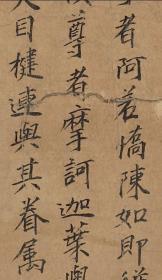 者阿若憍陳如即從
尊者摩訶迦葉與
大目揵連與其眷属